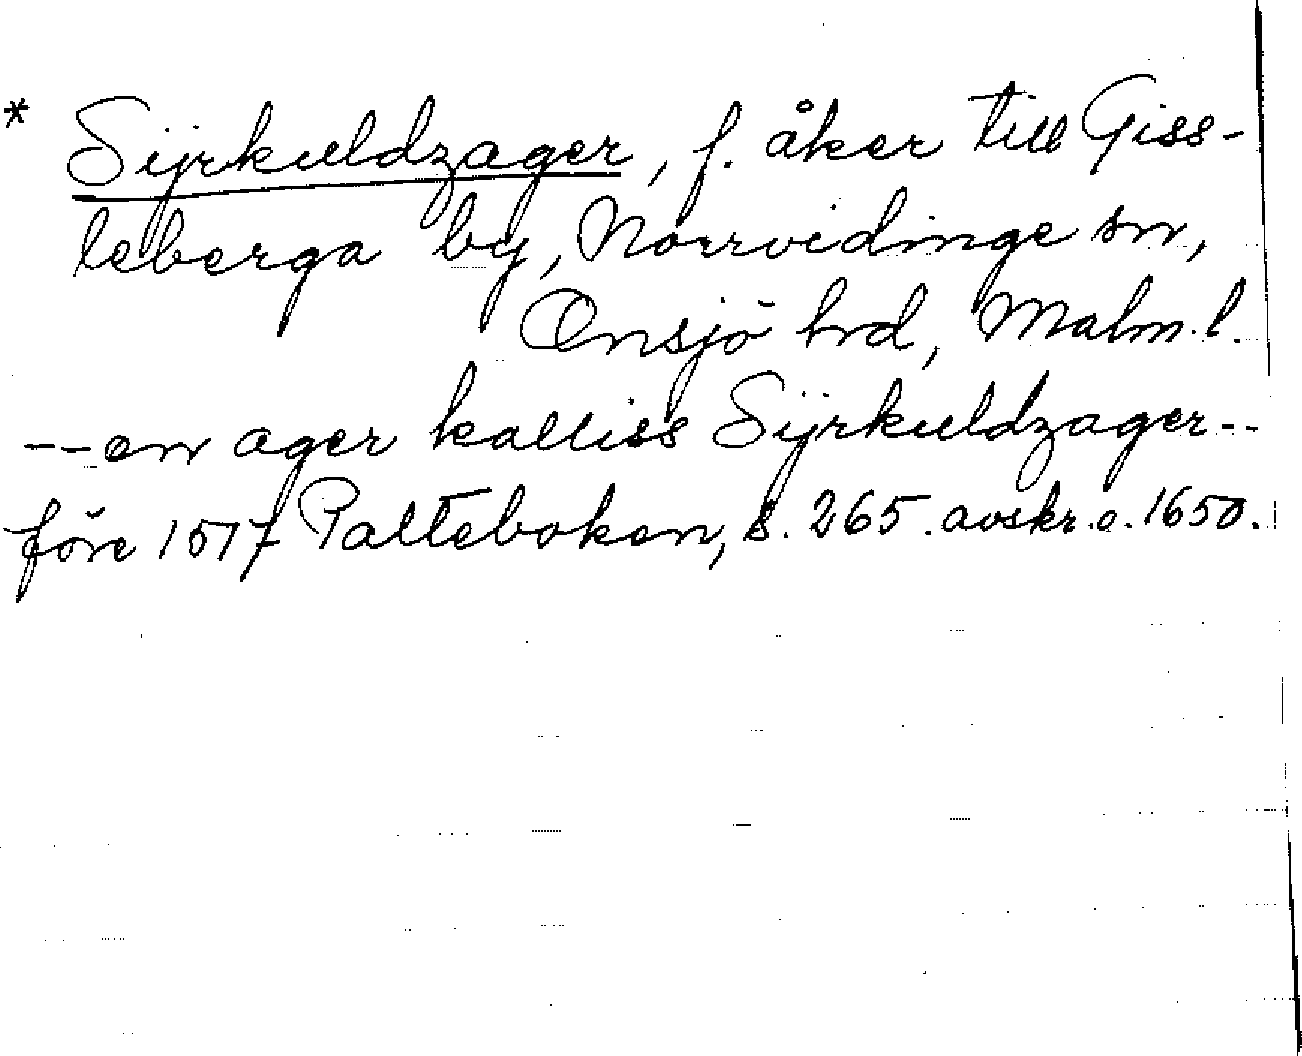 * Sijrkuldzager, f. åker till Giss-
leberga by, Norrvidinge sn,
Onsjö hrd, Malm.l.
-- en ager kalliss Sijrkuldzager --
före 1517 Palteboken, s. 265. avskr. o. 1650.